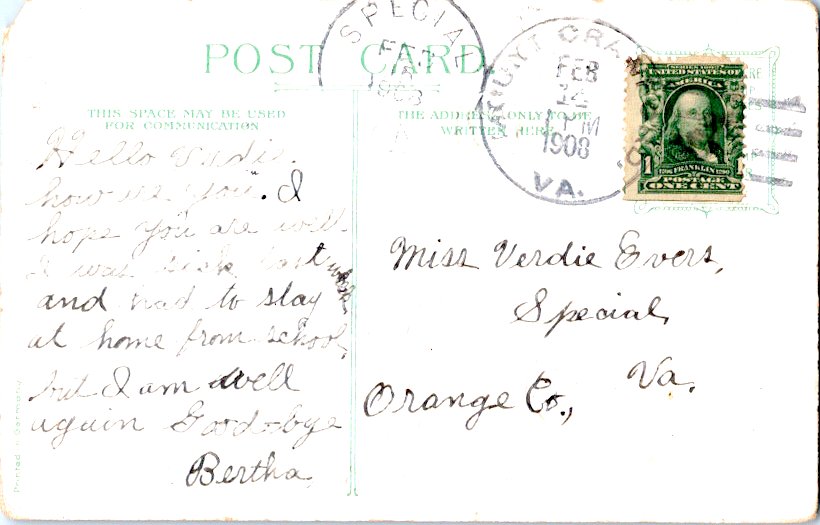 POST CARD.
SPECIAL
FEB
15
1908
MOUNT CRAWFORD
FEB
14
1 PM
1908
VA.
SERIES 1902
UNITED STATES OF
AMERICA
1 1
1706 FRANKLIN 1790
POSTAGE
ONE CENT
THIS SPACE MAY BE USED
FOR COMMUNICATION
THE ADDRESS ONLY TO BE
WRITTEN HERE
Hello Verdie.
how are you. I
hope you are well.
I was sick last week
and had to stay
at home from school,
but I am well
again Good-bye
Bertha.
Miss Verdie Evers,
Special,
Orange Co., Va.
Printed in Germany